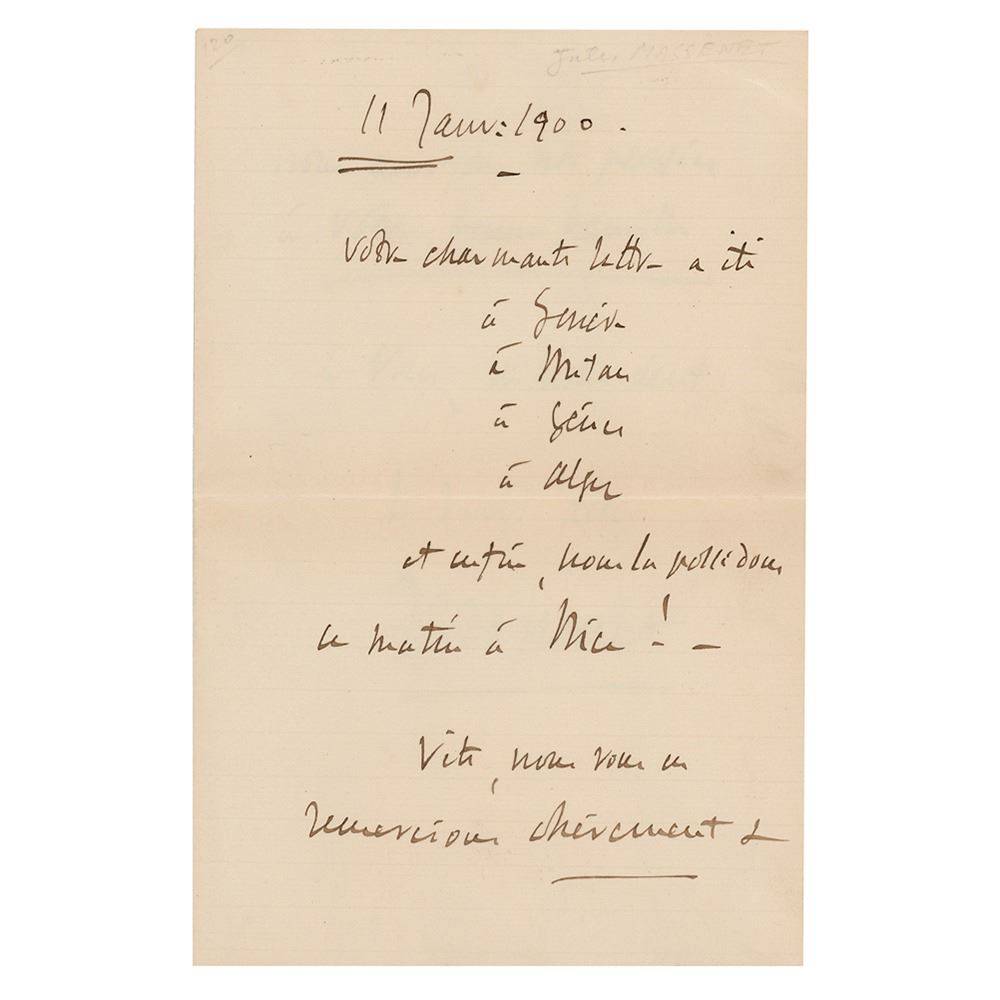 120
Jules MASSENET
11 Janv: 1900.
votre charmante lettre a été
à Genève
à Milan
à Gênes
à Alger
et enfin, nous la possédons
ce matin à Nice! -
Vite, nous vous en
remercions chèrement &